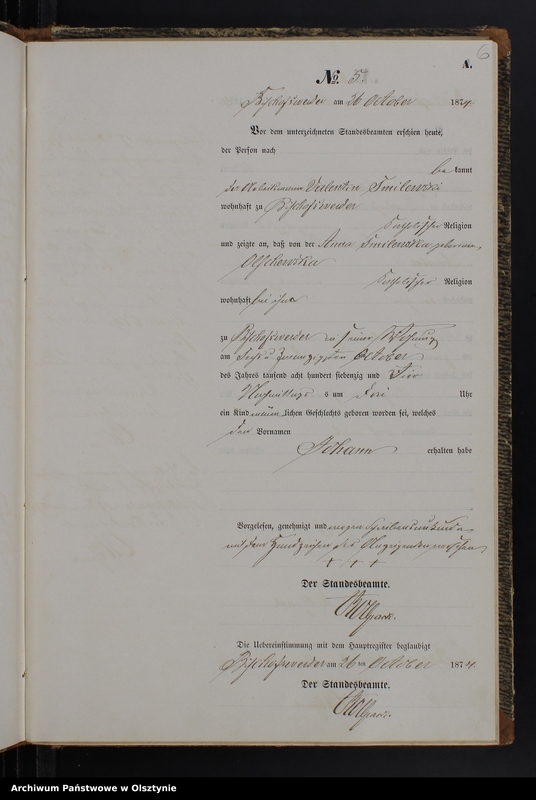 6
A.
No. 5.
Bischofswerder am 26 October 1874
Vor dem unterzeichneten Standesbeamten erschien heute,
der Person nach
be kannt
der Valentin Smilewski
wohnhaft zu Bischofswerder
katholischer Religion
und zeigte an, daß von der Anna Smilewska geborenen
Olschewska
katholischer Religion
wohnhaft bei ihm
zu Bischofswerder in seiner Wohnung
am Sechs u. Zwanzigsten October
des Jahres tausend acht hundert siebenzig und Vier
Nachmittags s um Drei Uhr
ein Kind männ lichen Geschlechts geboren worden sei, welches
den Vornamen
Johann erhalten habe
Vorgelesen, genehmigt und wegen Schreibensunkunde
mit dem Handzeichen des Anzeigenden versehen
+ + +
Der Standesbeamte.
Die Uebereinstimmung mit dem Hauptregister beglaubigt
Bischofswerder am 26 ten October 1874.
Der Standesbeamte.
Archiwum Państwowe w Olsztynie